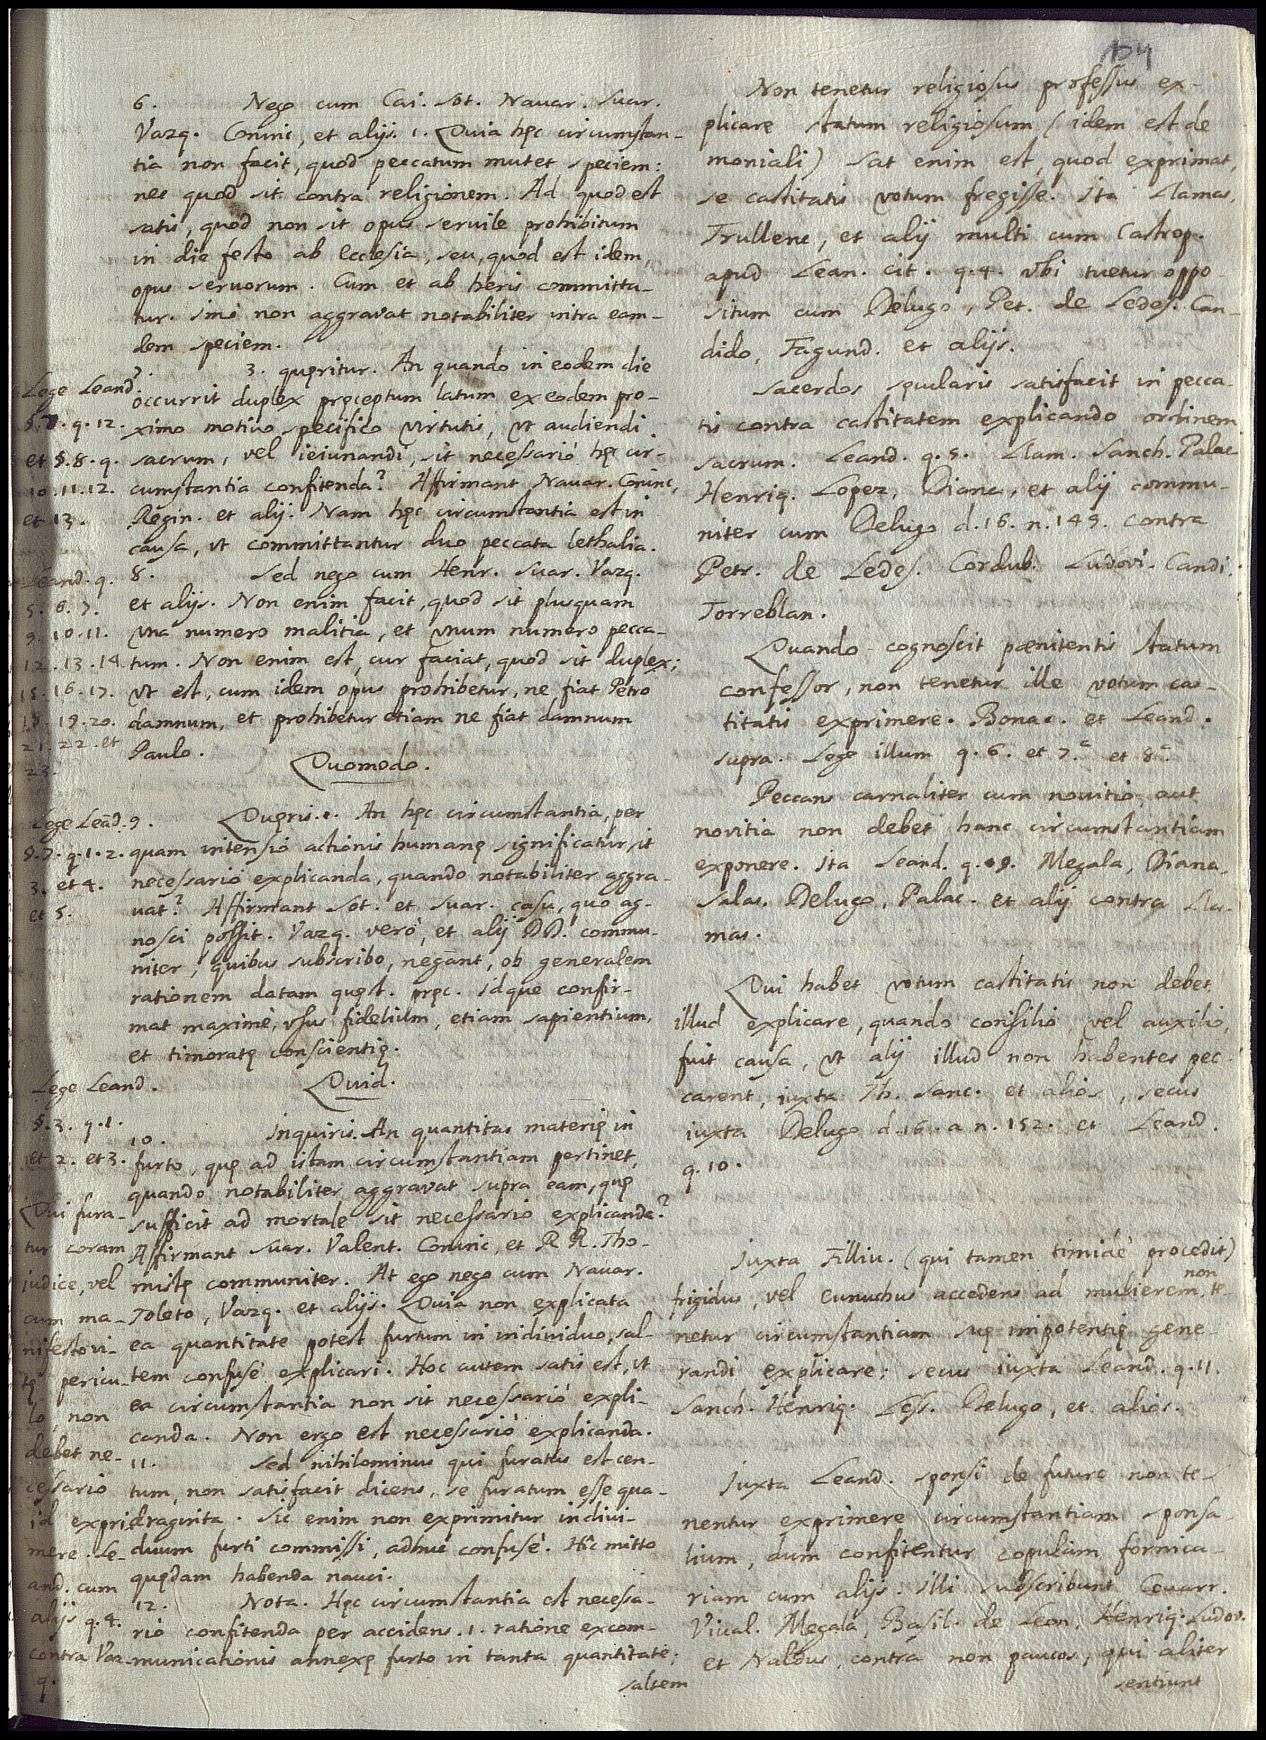 104
6. Nego cum Cai. Sot. Nauar. Suar.
Vazq. Coninc, et alijs. 1. Quia hęc circumstan-
tia non facit, quod peccatum mutet speciem:
nec quod sit contra religionem. Ad quod est
satis, quod non sit opus seruile prohibitum
in die festo ab Ecclesia, seu, quod est idem,
opus seruorum. Cum et ab heris committa-
tur. Imò non aggravat notabiliter intra eam-
dem speciem.
7. 3. quęritur. An quando in eodem die
occurrit duplex pręceptum latum ex eodem pro-
ximo motiuo specifico virtutis, vt audiendi
sacrum, vel ieiunandi, sit necessariò hęc cir-
cumstantia confitenda? Affirmant Nauar. Coninc,
Regin. et alij. Nam hęc circumstantia est in
causa, vt committantur duo peccata lethalia.
8. Sed nego cum Henr. Suar. Vazq.
et alijs. Non enim facit, quod sit plusquam
vna numero malitia, et vnum numero pecca-
tum. Non enim est, cur faciat, quod sit duplex;
vt est, cum idem opus prohibetur, ne fiat Petro
damnum, et prohibetur etiam ne fiat damnum
Paulo.
Quomodo.
9. Quęris. 1. An hęc circumstantia, per
quam intensio actionis humanę significatur, sit
necessariò explicanda, quando notabiliter aggra-
uat? Affirmant Sot. et Suar. casu, quo ag-
nosci possit. Vazq. verò, et alij DD. commu-
niter, quibus subscribo, negant, ob generalem
rationem datam quęst. pręc. Idque confir-
mat maximè, vsus fidelium, etiam sapientium,
et timoratę conscientię.
Quid.
10. Inquiris. An quantitas materię in
furto, quę ad istam circumstantiam pertinet,
quando notabiliter aggravat supra eam, quę
sufficit ad mortale sit necessariò explicanda?
Affirmant Suar. Valent. Coninc, et RR. Tho-
mistę communiter. At ego nego cum Nauar.
Toleto, Vazq. et alijs. Quia non explicata
ea quantitate potest furtum in indiuiduo, sal-
tem confusè explicari. Hoc autem satis est, vt
ea circumstantia non sit necessariò expli-
canda. Non ergo est necessariò explicanda.
11. Sed nihilominus qui furatus est cen-
tum, non satisfacit dicens, se furatum esse qua-
draginta. Sic enim non exprimitur indiui-
duum furti commissi, adhuc confusè. Hic mitto
quędam habenda nauci.
12. Nota. Hęc circumstantia est necessa-
riò confitenda per accidens. 1. ratione excom-
municationis annexę furto in tanta quantitate;
saltem
Lege Leand.
§. 7. q. 12.
et §. 8. q.
10. 11. 12.
et 13.
Leand. q.
5. 6. 7.
9. 10. 11.
12. 13. 14.
15. 16. 17.
18. 19. 20.
21. 22. et
23.
Lege Leãd.
q. 1. 2.
3. et 4.
et 5.
Lege Leand.
§. 3. q. 1.
et 2. et 3.
Qui fura-
tur coram
iudice, vel
cum ma-
nifesto vi-
tę pericu-
lo, non
debet ne-
cessariò
id expri-
mere. Le-
and. cum
alijs q. 4.
contra Vaz-
q.
Non tenetur religiosus professus ex-
plicare statum religiosum (idem est de
moniali) sat enim est, quod exprimat,
se castitatis votum fregisse. Ita Llamas,
Trullenc, et alij multi cum Castrop.
apud Lean. cit. q. 4. vbi tuetur oppo-
situm cum Delugo, Pet. de Ledes. Can-
dido, Fagund. et alijs.
Sacerdos secularis satisfacit in pecca-
tis contra castitatem explicando ordinem
sacrum. Leand. q. 5. Llam. Sanch. Palac
Henriq. Lopez, Diana, et alij commu-
niter cum Delugo d. 16. n. 149. contra
Petr. de Ledes. Cordub. Ludovi. Candi.
Torreblan.
Quando cognoscit pœnitentis statum
confessor, non tenetur ille votum cas-
titatis exprimere. Bonac. et Leand.
supra. Lege illum q. 6. et 7.ª et 8.ª
Peccans carnaliter cum nouitio, aut
novitia non debet hanc circumstantiam
exponere. Ita Leand. q. 9. Megala, Diana,
Salas. Delugo, Palac. et alij contra Lla-
mas.
Qui habet votum castitatis non debet
illud explicare, quando consilio vel auxilio
fuit causa, vt alij illud non habentes pec-
carent, iuxta Th. Sanc. et alios, secus
iuxta Delugo d. 16. a n. 152. et Leand.
q. 10.
Iuxta Filliu. (qui tamen timidè procedit)
frigidus, vel eunuchus accedens ad mulierem, non te-
netur circumstantiam suę impotentię gene-
randi explicare; secus iuxta Leand. q. 11.
Sanch. Henriq. Less. Delugo, et alios.
Iuxta Leand. sponsi de futuro non te-
nentur exprimere circumstantiam sponsa-
lium, dum confitentur copulam fornica-
riam cum alijs. Illi subscribunt Couarr.
Viual. Megala, Basil. de Leon, Henriq. Ludov.
et Naldus, contra non paucos, qui aliter
sentiunt